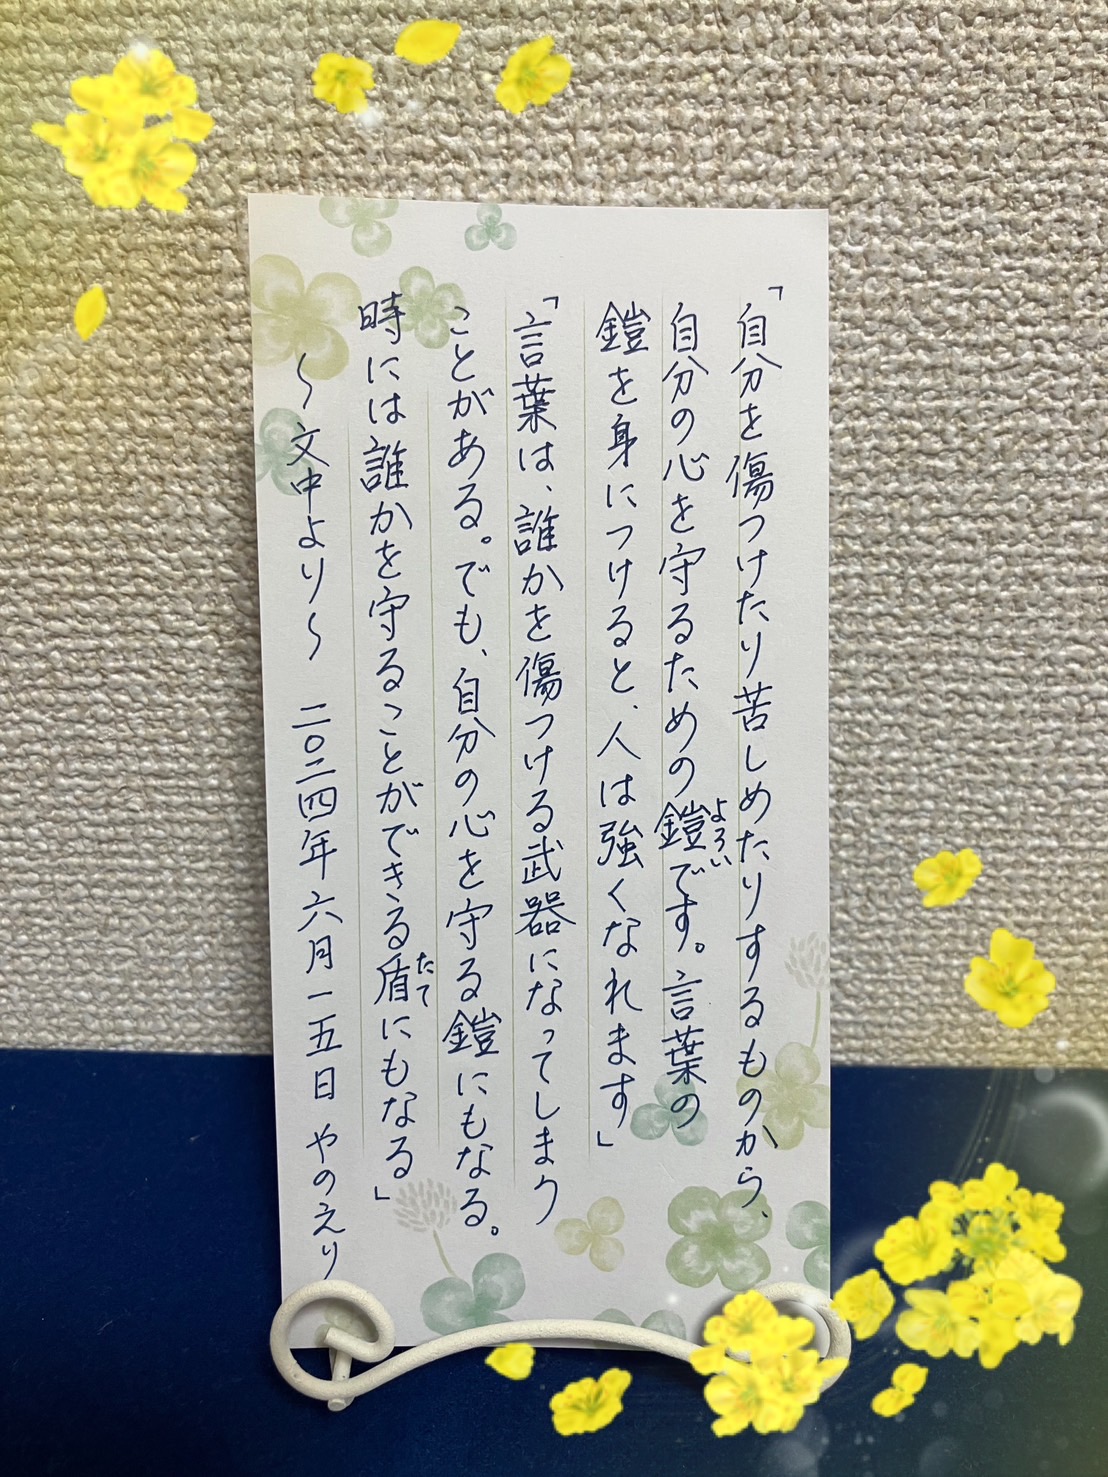 「自分を傷つけたり苦しめたりするものから、
自分の心を守るための鎧です。言葉の
よろい
鎧を身につけると、人は強くなれます」
「言葉は、誰かを傷つける武器になってしまう
ことがある。でも、自分の心を守る鎧にもなる。
時には誰かを守ることができる盾にもなる」
たて
〜文中より〜 二〇二四年六月一五日 やのえり